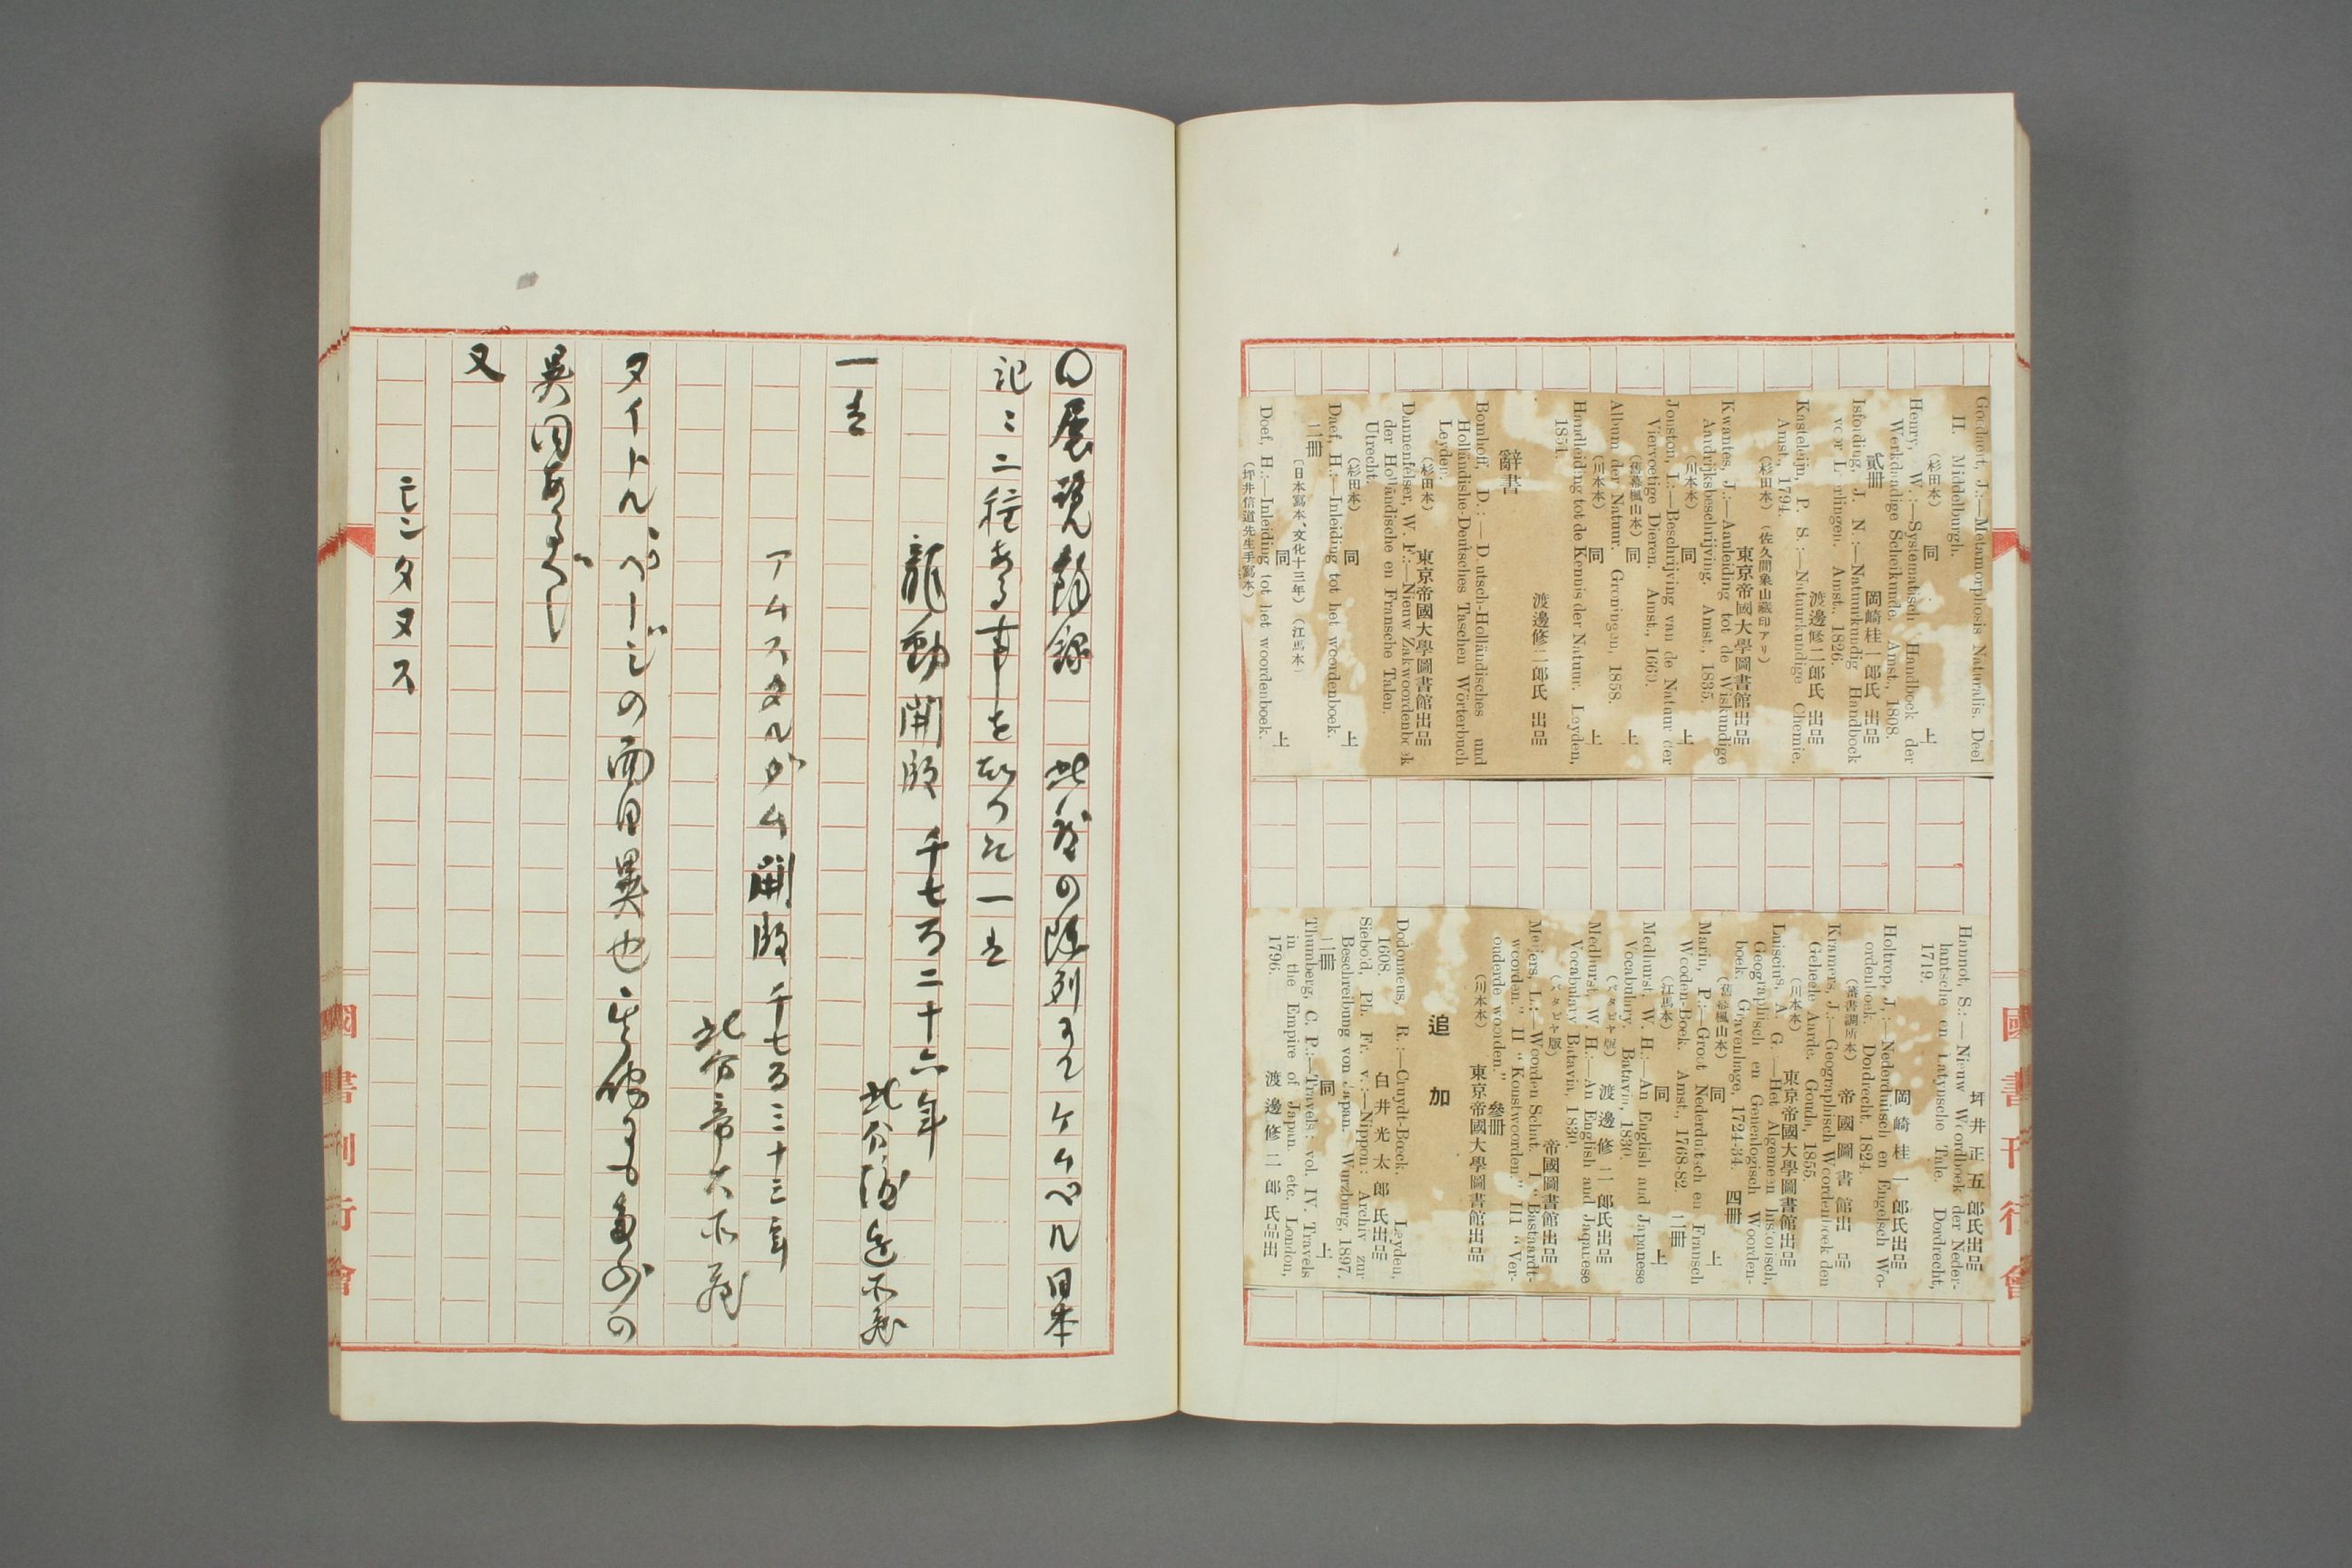 Goedaert, J.:—Metamorphosis Naturalis. Deel
II. Middelburgh.
(杉田本) 同 上
Henry, W.:—Systematisch Handboek der
Werkdadige Scheikunde. Amst., 1808.
貳冊 岡崎桂一郎氏出品
Isfording, J. N.:—Natuurkundig Handboek
voor Leerlingen. Amst., 1826.
渡邊修二郎氏出品
Kasteleijn, P. S.:—Natuurkundige Chemie.
Amst., 1794.
(杉田本)(佐久間象山藏印アリ)
東京帝國大學圖書館出品
Kwantes, J.:—Aanleiding tot de Wiskundige
Aardrijksbeschrijving. Amst., 1835.
(川本本) 同 上
Jonston, L.:—Beschrijving van de Natuur der
Viervoetige Dieren. Amst., 1660.
(舊幕楓山本) 同 上
Album der Natuur. Groningen, 1858.
(川本本) 同 上
Handleiding tot de Kennis der Natuur. Leyden,
1851.
渡邊修二郎氏出品
辭書
Bomhoff, D.:—Dutsch-Holländisches und
Holländishe-Deutsches Taschen Wörterbuch
Leyden.
(杉田本) 東京帝國大學圖書館出品
Dannenfelser, W. F.:—Nieuw Zakwoordenboek
der Holländische en Fransche Talen.
Utrecht.
(杉田本) 同 上
Daef, H.:—Inleiding tot het woordenboek.
二冊
(日本寫本、文化十三年)(江馬本)
同 上
Doef, H.:—Inleiding tot het woordenboek.
(坪井信道先生手寫本)
坪井正五郎氏出品
Hannot, S.:—Nieuw Woordboek der Neder-
lantsche en Latynsche Tale. Dordrecht,
1719.
岡崎桂一郎氏出品
Holtrop, J.:—Nederduitsch en Engelsch Wo-
ordenboek. Dordrecht, 1824.
(蕃書調所本) 帝國圖書館出品
Kramers, J.:—Geographisch Woordenboek den
Geheele Aarde. Gouda, 1855.
(川本本) 東京帝國大學圖書館出品
Luiscius, A. G.:—Het Algemeen historisch,
Geographisch en Genealogisch Woorden-
boek. Gravenhage, 1724-34. 四冊
(舊幕楓山本) 同 上
Marin, P.:—Groot Nederdutsch en Fransch
Wooden-Boek. Amst., 1768-82. 二冊
(江馬本) 同 上
Medhurst, W. H.:—An English and Japanese
Vocabulary. Batavia, 1830.
(バタビヤ版) 渡邊修二郎氏出品
Medhurst, W. H.:—An English and Japanese
Vocabulary. Batavia, 1830.
(バタビヤ版) 帝國圖書館出品
Meijers, L.:—Woorden Schat. I "Bastaardt-
woorden." II "Konstwoorden." III "Ver-
ouderde woorden." 參冊
(川本本) 東京帝國大學圖書館出品
追加
Dodonaeus, R.:—Cruydt-Boeck. Leyden,
1608. 白井光太郎氏出品
Siebold, Ph. Fr. v.:—Nippon: Archiv zur
Beschreibung von Japan. Wurzburg, 1897.
二冊 同 上
Thumberg, C. P.:—Travels: vol. IV. Travels
in the Empire of Japan. etc. London,
1796. 渡邊修二郎氏出品
國書刊行會
〇展覽餘錄 此度の陳列スルケムペル日本
記ニ二種ある事を知りそ一は
龍動開版 千七百二十六年
此分渡邊所藏
一は
アムスタルダム開版 千七百三十三年
此分帝大所藏
タイトルページの面目異也其他にも多少の
異同あるべし
又
モンタヌス
國書刊行會